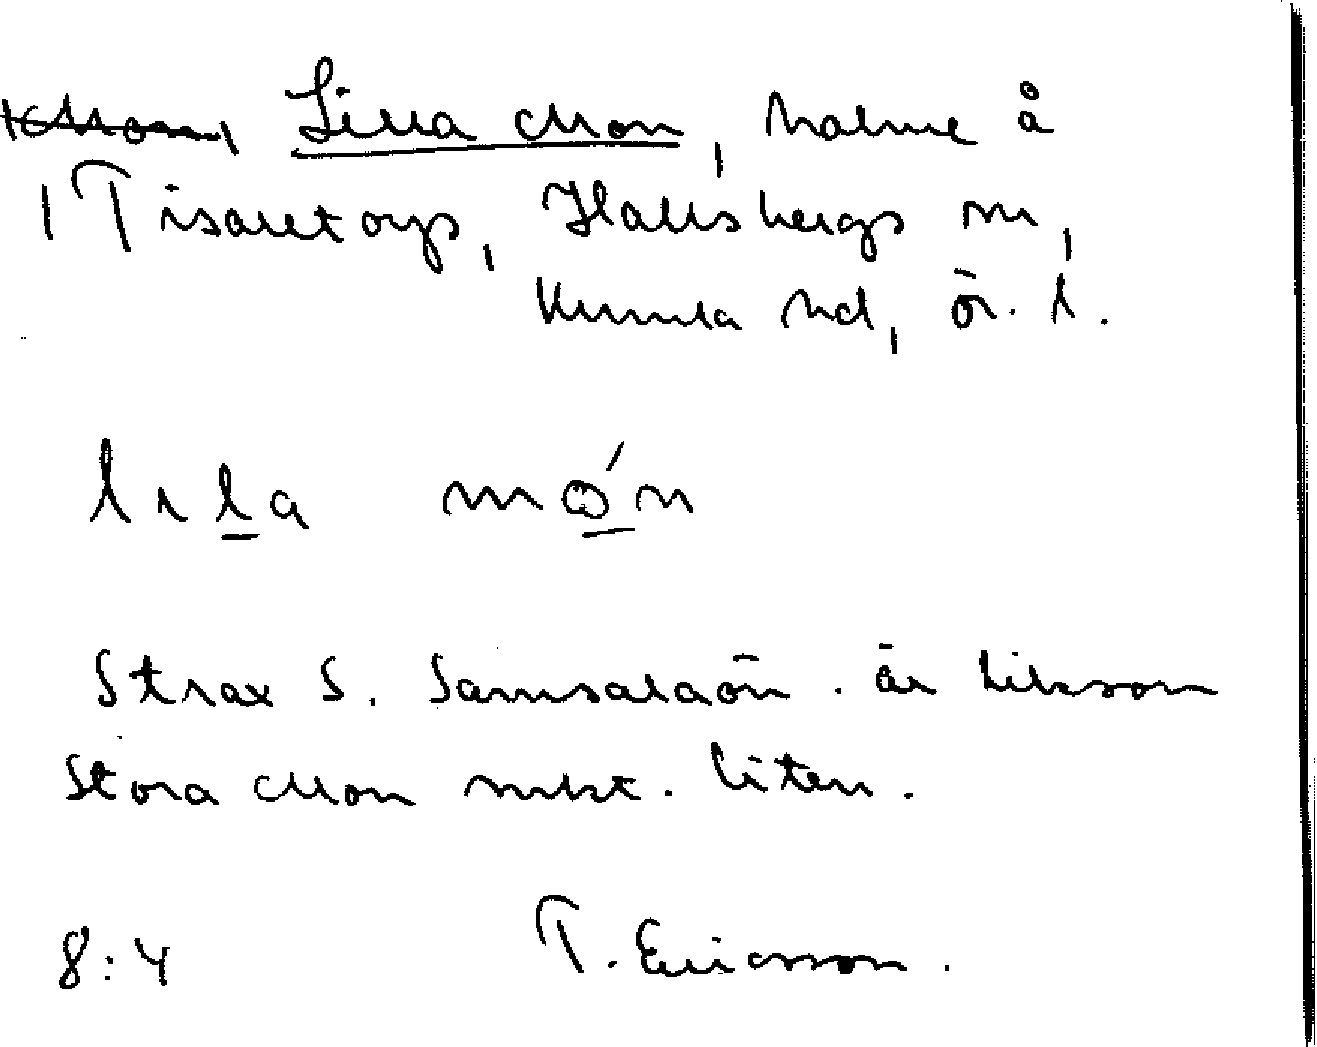 Lilla Mon, holme å
Tisaretorp, Hallsbergs sn,
Kumla hd, Ör. l.
lıla mó̲n
Strax S. Samsalaön. är liksom
Stora Mon mkt. liten.
8:4 T. Ericsson.